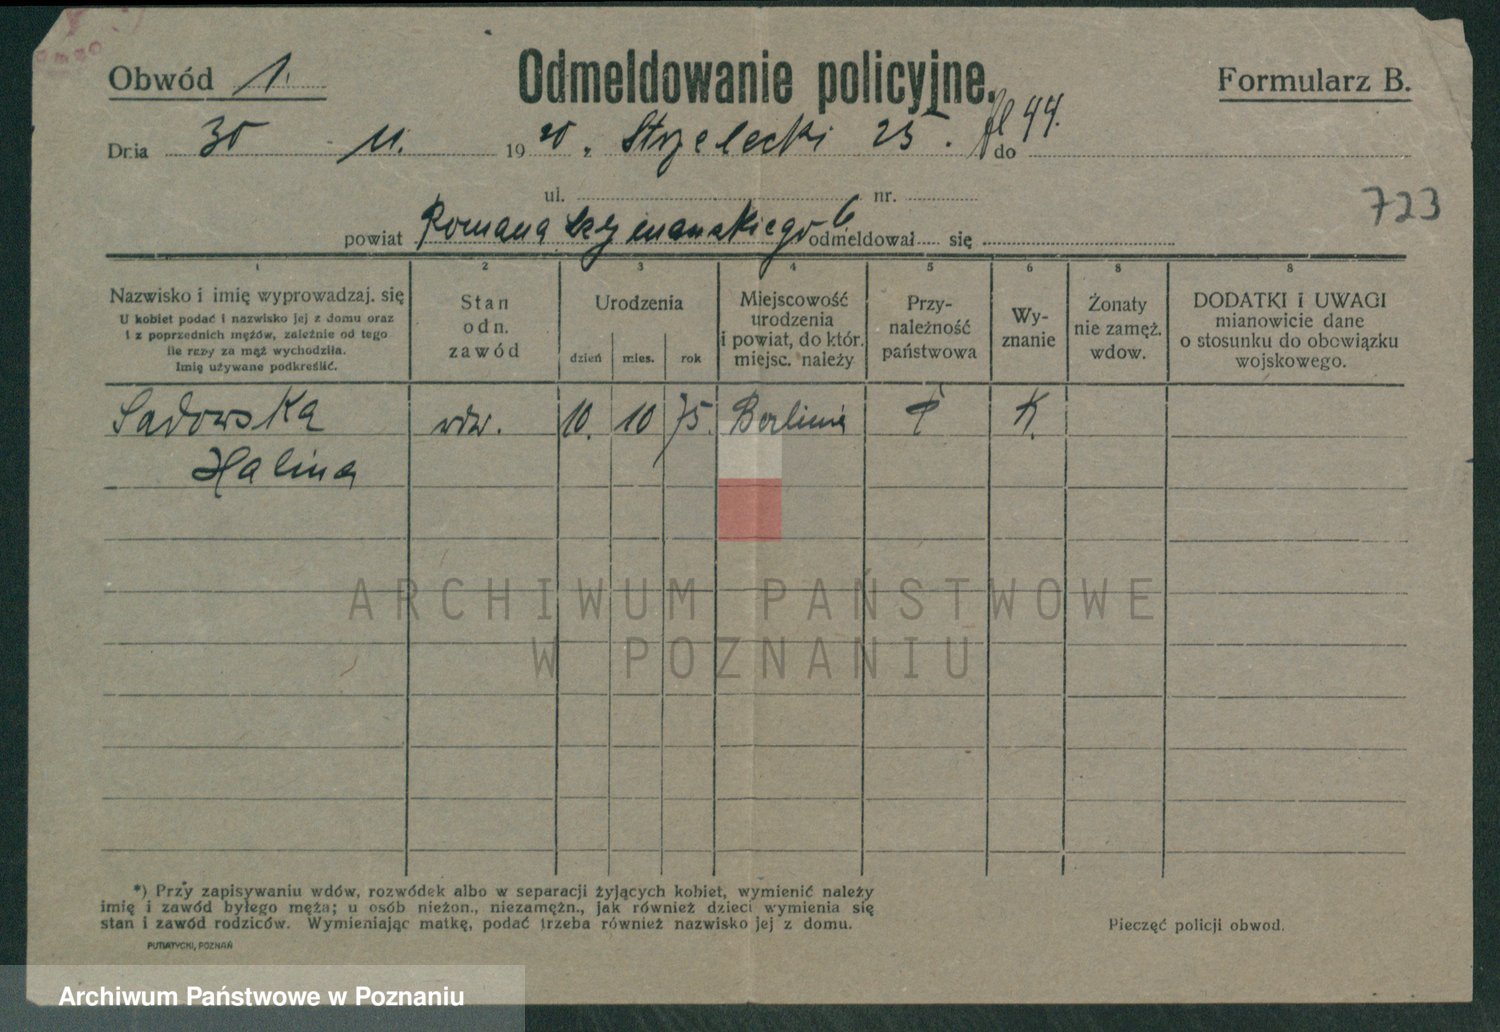 Obwód 1.
Odmeldowanie policyjne.
Formularz B.
Dnia 30 11. 1920. z Strzelecki 25. do
44.
ul. nr.
723
powiat Romana Szymanskiego 6 odmeldował się
1 2 3 4 5 6 8 8
Nazwisko i imię wyprowadzaj. się
U kobiet podać i nazwisko jej z domu oraz
i z poprzednich mężów, zależnie od tego
ile rezy za mąż wychodziła.
Imię używane podkreślić.
Stan
odn.
zawód
Urodzenia
dzień mies. rok
Miejscowość
urodzenia
i powiat, do któr.
miejsc. należy
Przy-
należność
państwowa
Wy-
znanie
Żonaty
nie zamęż.
wdow.
DODATKI i UWAGI
mianowicie dane
o stosunku do obowiązku
wojskowego.
Sadowska wdw. 10. 10 75. Berlinie K.
Halina
ARCHIWUM PAŃSTWOWE
W POZNANIU
*) Przy zapisywaniu wdów, rozwódek albo w separacji żyjących kobiet, wymienić należy
imię i zawód byłego męża; u osób nieżon., niezamężn., jak również dzieci wymienia się
stan i zawód rodziców. Wymieniając matkę, podać trzeba również nazwisko jej z domu.
Pieczęć policji obwod.
PUTIATYCKI, POZNAŃ
Archiwum Państwowe w Poznaniu